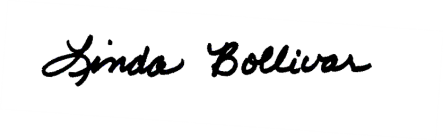 Linda Bollivar